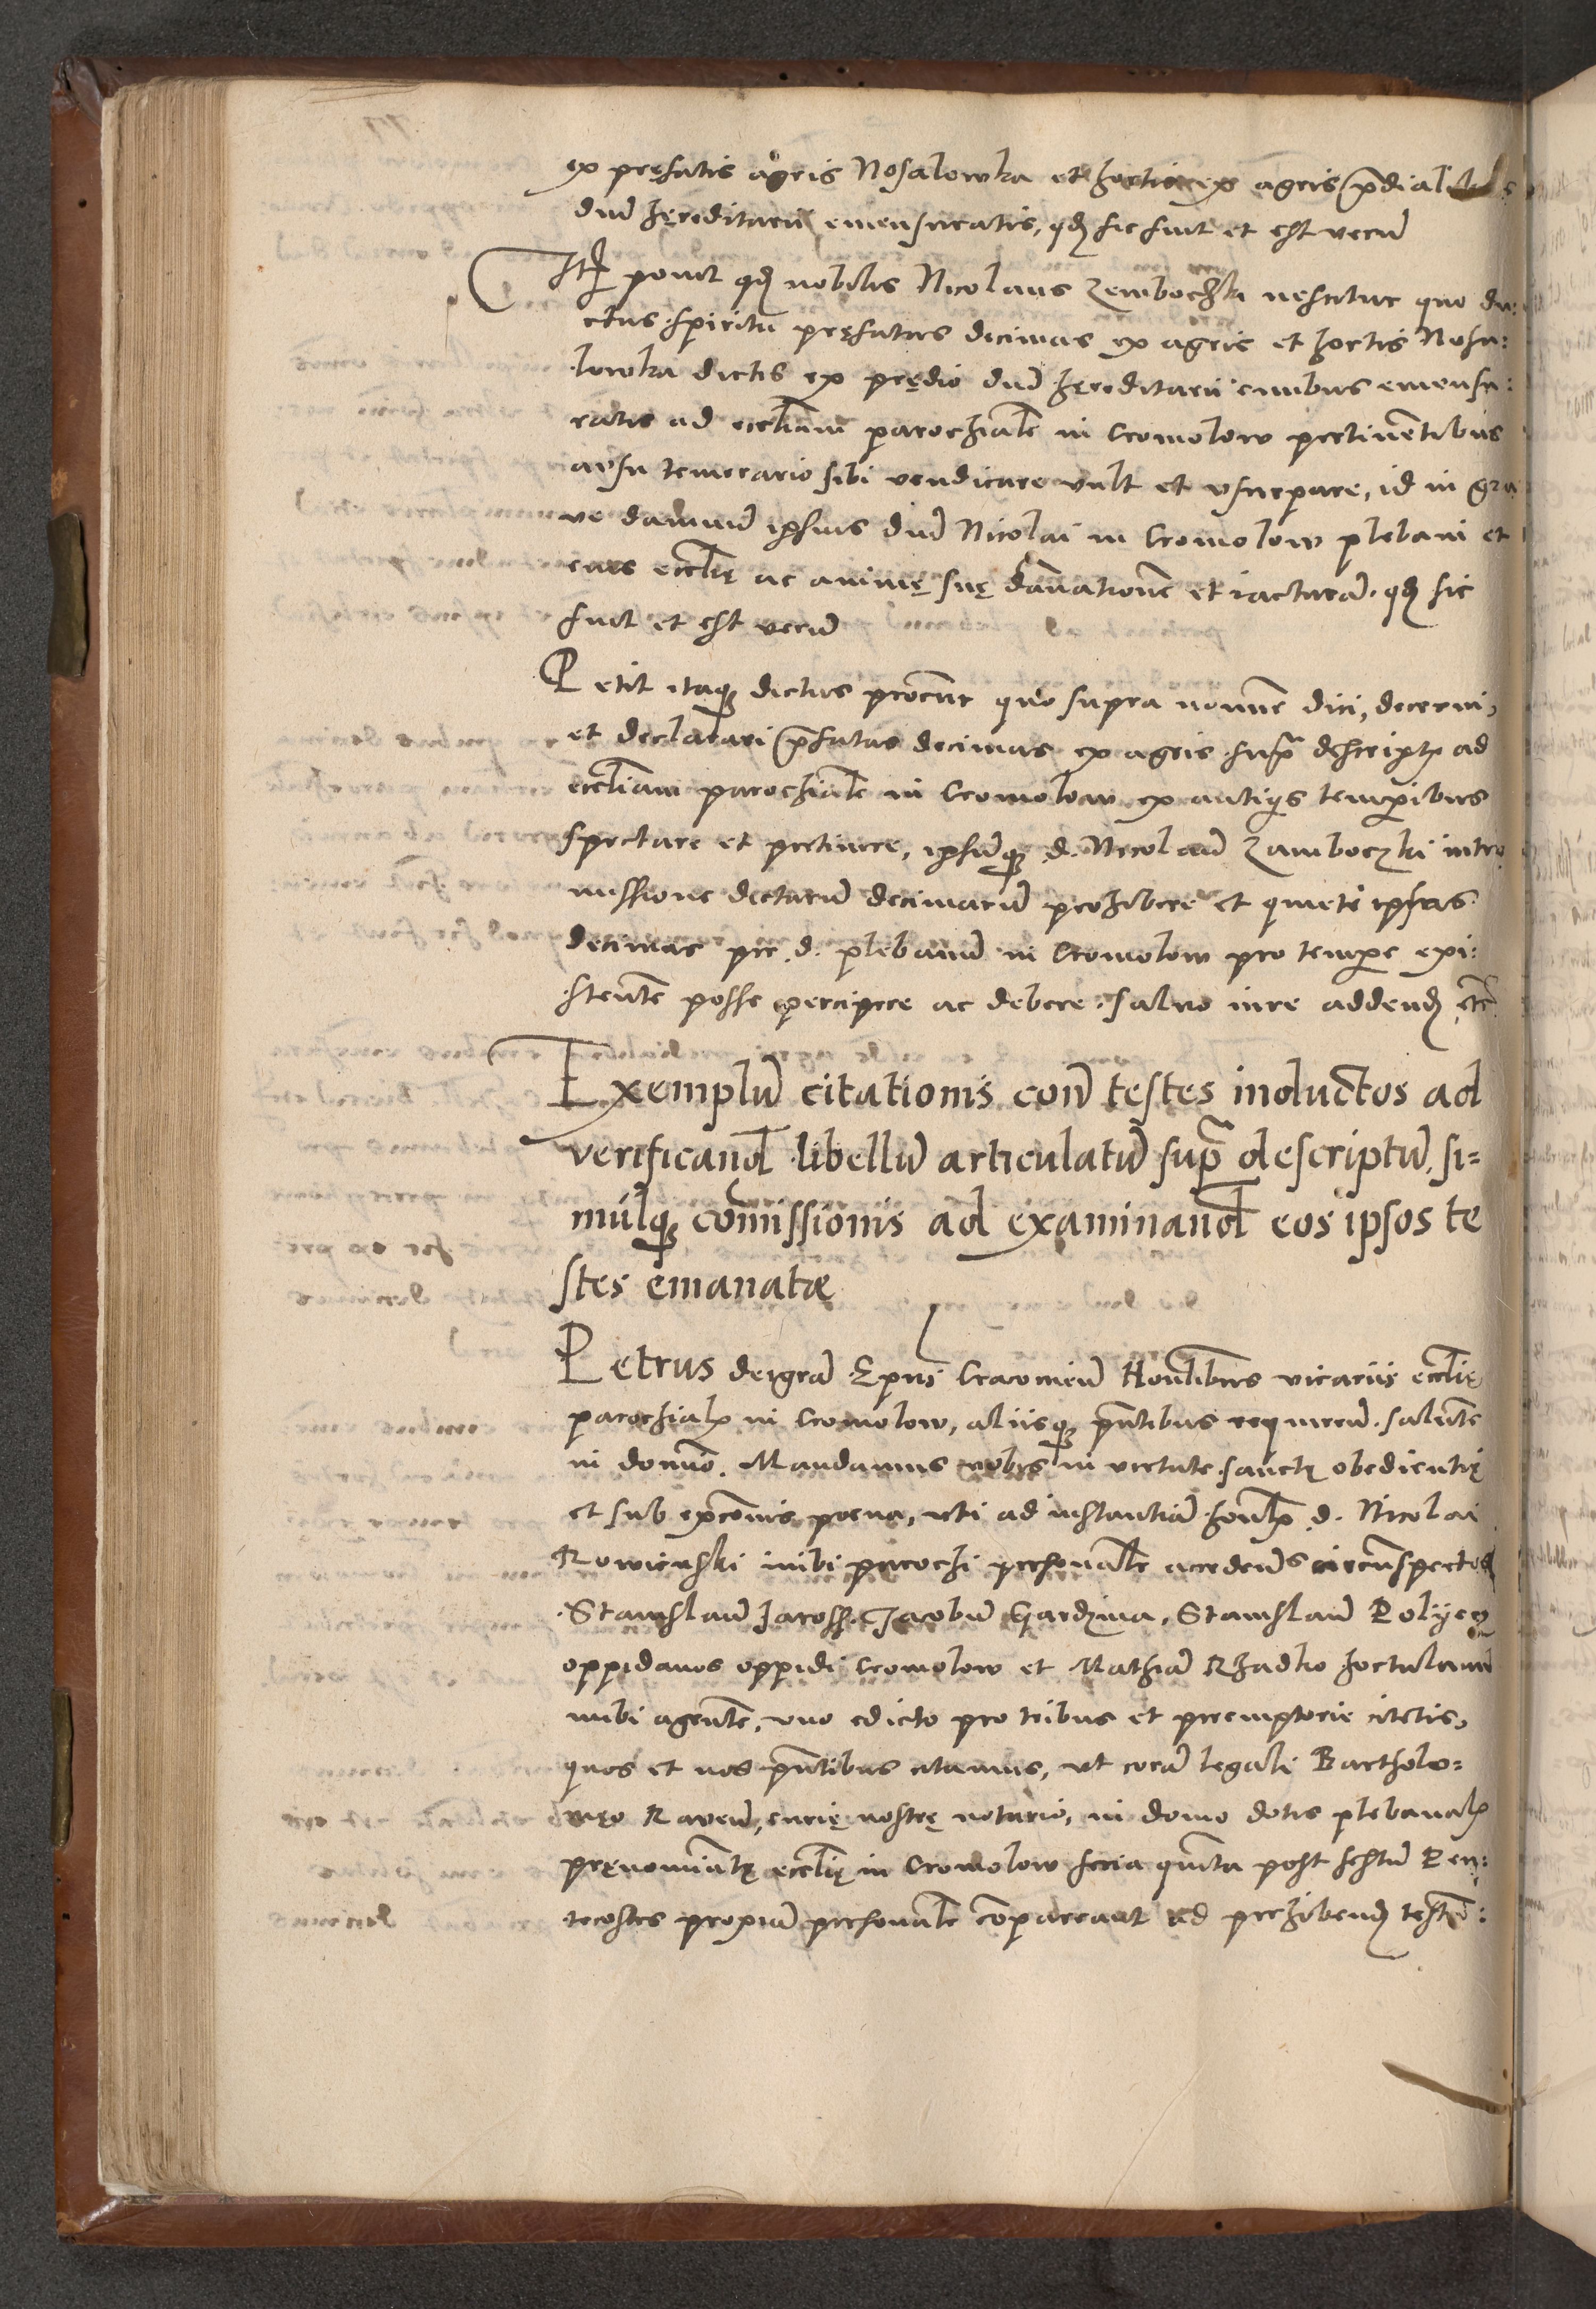 ex pręfatis agris Nosalowka et hortis ex agris p̄dialibus
dnū hęreditariū emensuratis, qđ sic fuit et est verū
Itē ponit qđ nobilis Nicolaus Zemboczki nescitur quo du:
ctus spiritu pręfatas decimas ex agris et hortis Nosa:
lowka dictis ex prędio dnū hęreditarii civibus emensu:
ratis ad eccliam parochialē in Cromolow pertinētibus
ausu temerario sibi vendicare vult et usurpare, id in gra
ve damnū ipsius dnī Nicolai in Cromolow plebani et
eius ecclię ac animę suę dānationē et iacturā. qđ sic
fuit et est verū
Petit itaq; dictus procur quo supra nomine dici, decerni,
et declarari p̄fatas decimas ex agris sup̄ descriptis ad
eccliam parochialē in Cromolow ex antiquis temporibus
spectare et pertinere, ipsumq; d. Nicolaū Zamboczki intro
missione dictarū decimarū prohibere et quietē ipsas
decimas per d. plebanū in Cromolow pro tempore exi:
stentē posse percipere ac debere. salvo iure addendi etc̄
Exemplū citationis con̄ testes inductos ad
verificand libellū articulatū sup̄ descriptū, si=
mulq; com̄issionis ad examinand eos ipsos te
stes emanatæ
Petrus dei gra Epus Cracovień Honlibus vicariis ecclię
parochialis in Cromolow, aliisq; pn̄tibus requireń. salutē
in domino. Mandamus vobis in virtute sanctę obedientię
et sub excōnis poena, uti ad instantiā honlis d. Nicolai
Rowienski inibi parochi personaliter accedentes circūspectos
Stanislaū Jaross, Jacobū Gardzina, Stanislaū Polycz
oppidanos oppidi Cromolow et Mathiā Rhadlo hortulanū
inibi agentē, uno edicto pro tribus et peremptorie citetis,
quos et nos pn̄tibus citamus, ut corā legali Bartholo=
męo Raveń, curię nostrę notario, in domo dotis plebanalis
pręnominatę ecclię in Cromolow feria quinta post festū Pen:
tecostes proximā personaliter compareant ad perhibendū testiō: